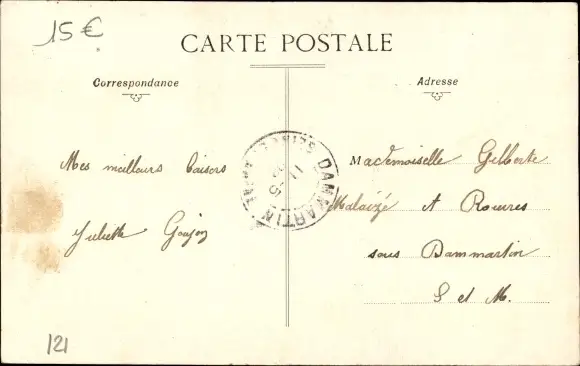 15 €
CARTE POSTALE
Correspondance
Adresse
Mes meilleurs baisers
Juliette Goujon
Mademoiselle Gilberte
Malaizé A Rouvres
sous Dammartin
S et M.
DAMMARTIN
121